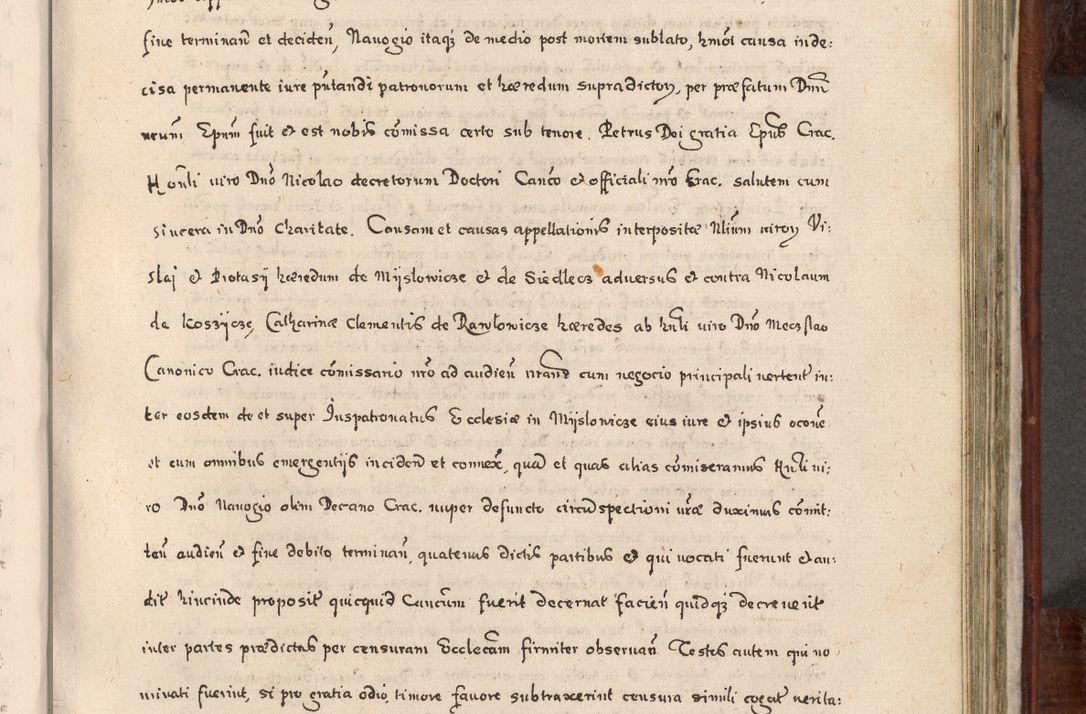 fine terminan̄ et deciden̄, Navogio itaqȝ de medio post mortem sublato, hmōi causa inde:
cisa permanente iure pn̄tandi patronorum et hæredum supradictoꝝ, per præfatum Dnm̄
nrum̄ Epum̄ fuit et est nobis cōmissa certo sub tenore. Petrus Dei gratia Epus̄ Crac.
Honli̅ viro Dnō Nicolao decretorum Doctori Canco̅ et officiali nrō Crac. salutem cum
sincera in Dnō Charitate. Causam et causas appellationis interpositæ Nlium̄ viroꝝ Vi:
slaj et Protasij hæredum de Mijslowicze et de Siedlecz adversus et contra Nicolaum
de Koszijcze, Catharinæ Clementis de Rawłowicze hæredes ab hnli̅ viro Dnō Meczslao
Canonico Crac. iudice cōmissario nrō ad audien̄ cum negocio principali vertent̄ in:
ter eosdem de et super Iuspatronatus Ecclesiæ in Mijslowicze eius iure et ipsius occoñe
et cum omnibus emergentijs inciden̄ et connex̄, quā et quas alias cōmiseramus Hnli̅ vi:
ro Dnō Navogio olim Decano Crac. nuper defuncto circūspectioni vrāe duximus cōmit:
ten̄ audien̄ et fine debito terminan̄, quatenus dictis partibus et qui vocati fuerunt et au:
dit̄ hincinde proposit̄ quicquid Cancum̄ fuerit decernat̄ facien̄ quidqȝ decreverit̄
inter partes prædictas per censuram Ecclecam̄ firmiter observan̄. Testes autem qui no
minati fuerint, si pro gratia odio, timore favore subtraxerint censura simili cogat̄ verita: